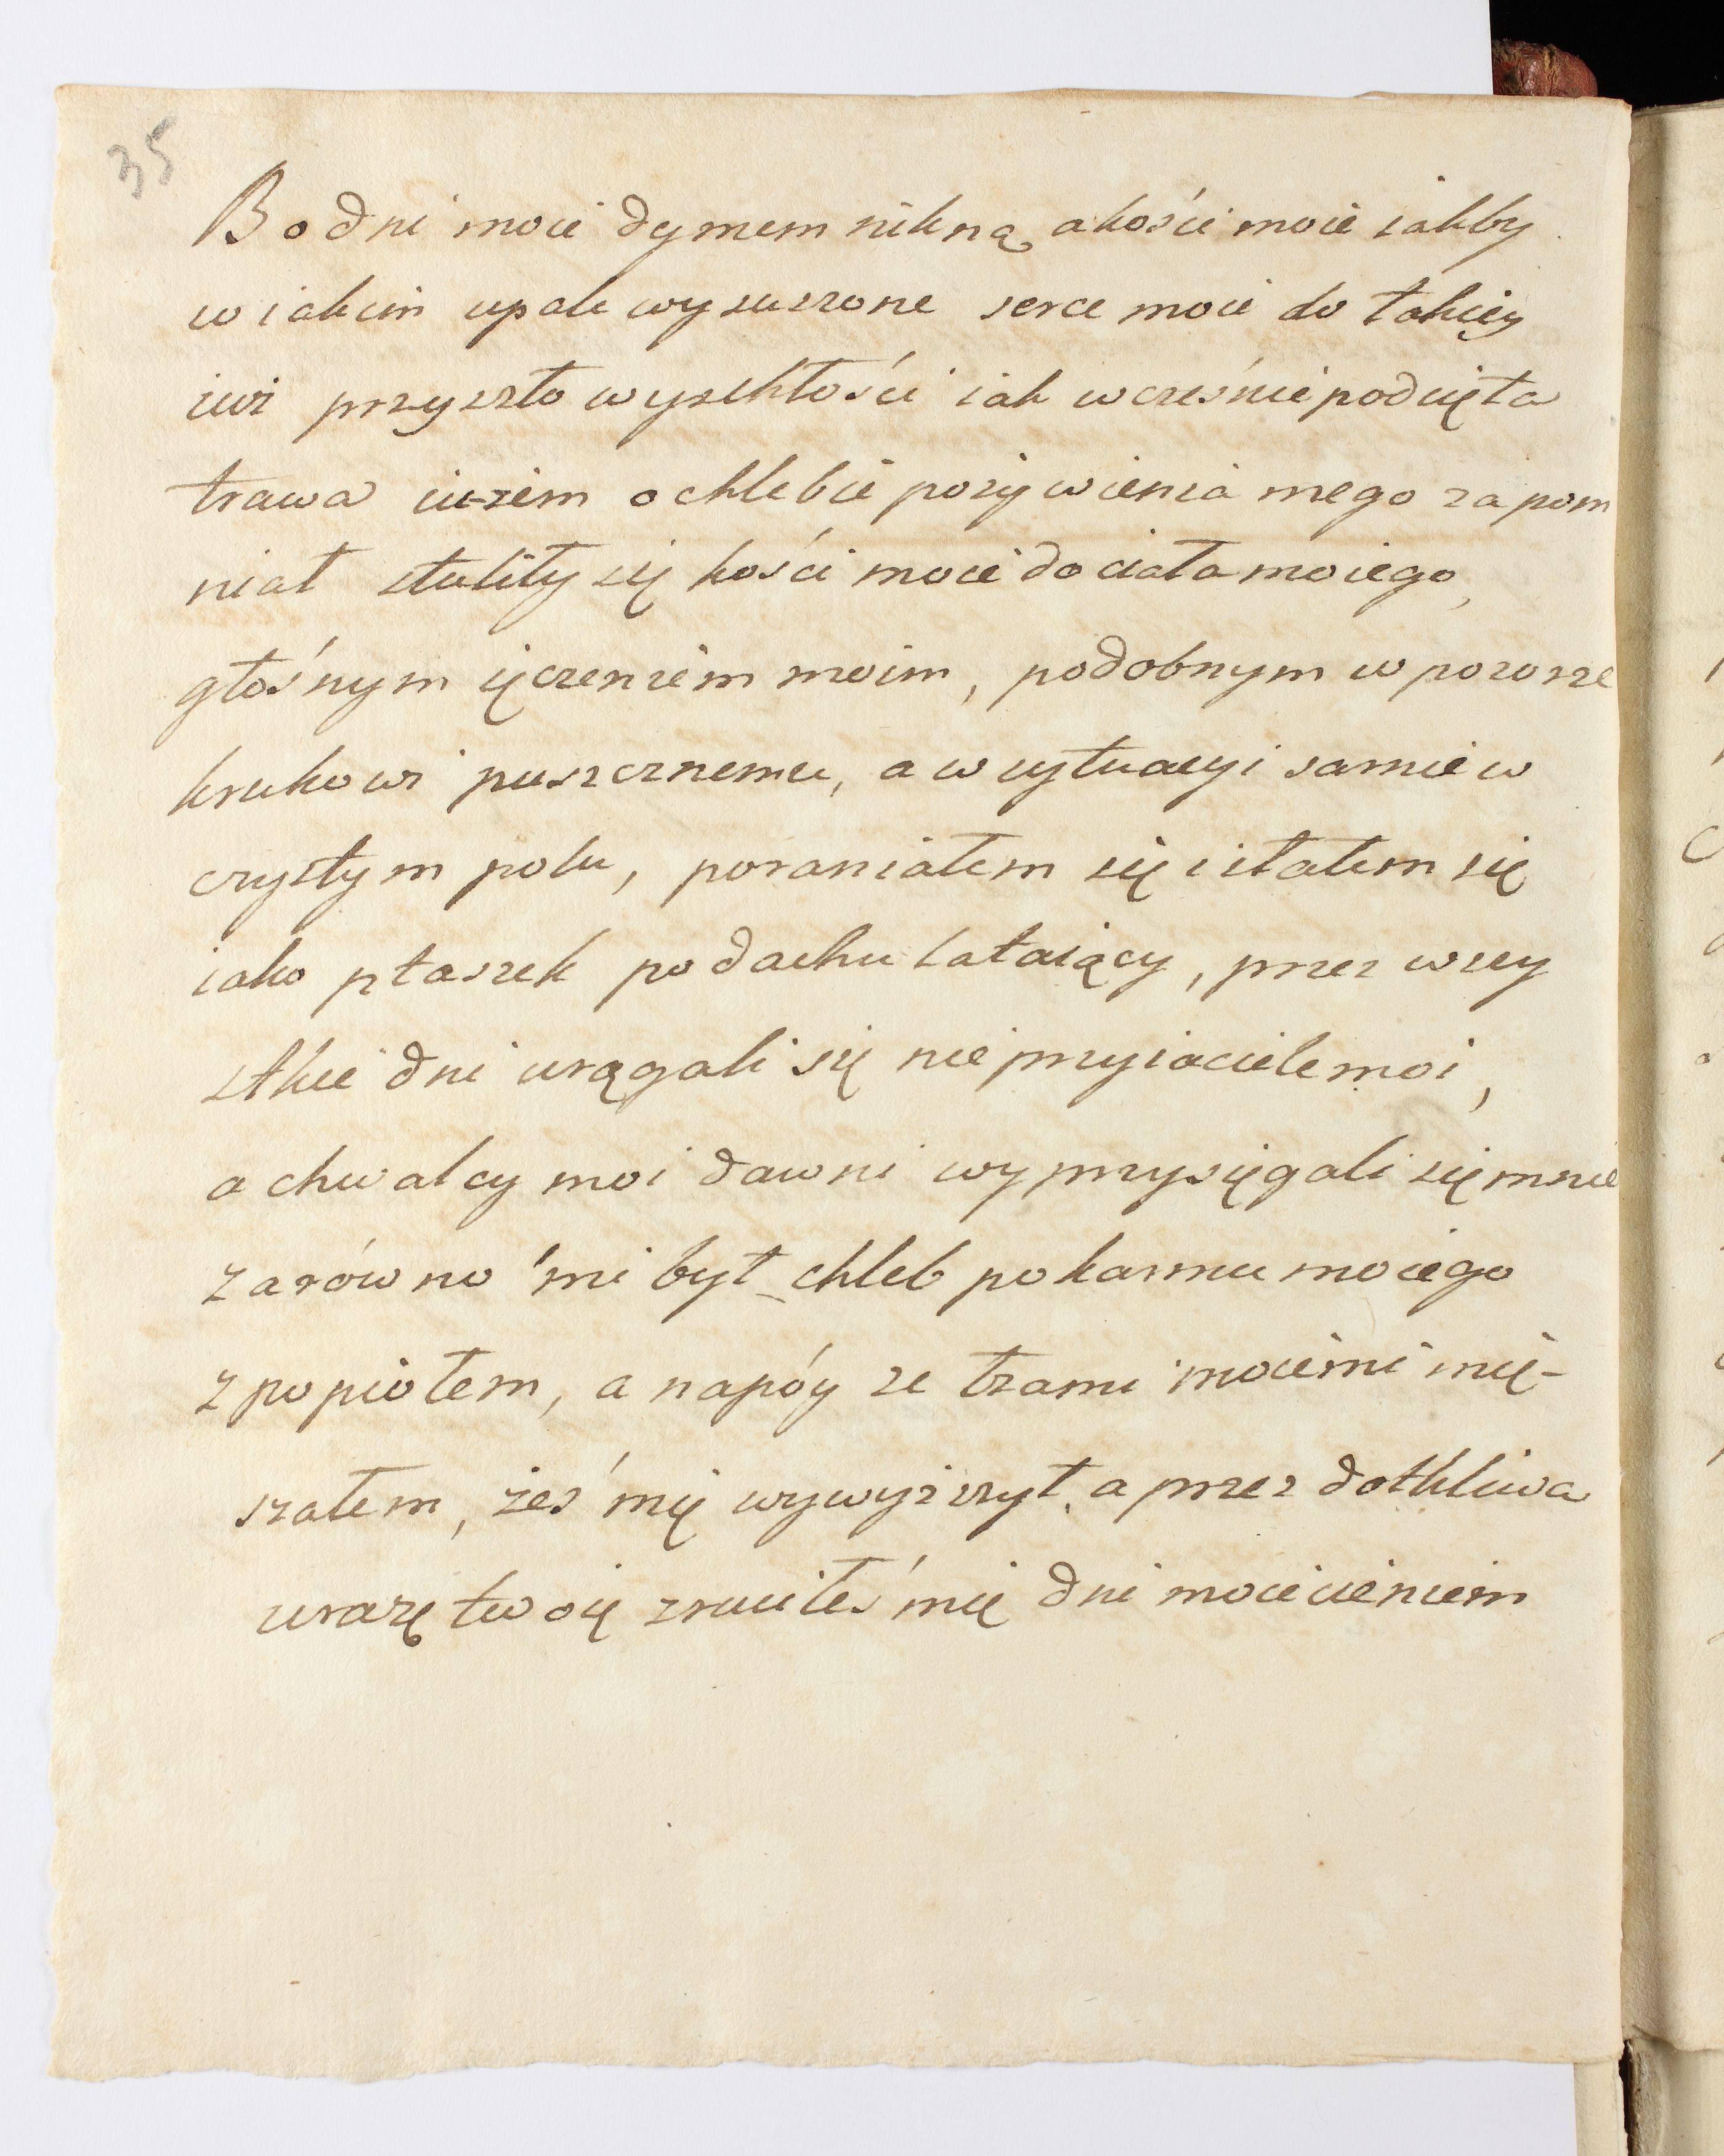 35
Bo dni moie dymem nikną a kości moie iakby
w iakim upale wysuszone serce moie do takiey
iuż przyszło wyschłości iak wcześnie podcięta
trawa iużem o chlebie pożywienia mego zapom
niał stuliły się kości moie do ciała moiego,
głośnym ięczeniem moim, podobnym w pozorze
krukowi puszcznemu, a w sytuacyi samie w
czystym polu, poraniałem się i stałem się
iako ptaszek po dachu lataiący, przez wszy
stkie dni urągali się nieprzyiaciele moi,
a chwalcy moi dawni wyprzysięgali się mnie
zarówno mi był chleb pokarmu moiego
z popiołem, a napóy ze łzami moiemi mię-
szałem, żeś mię wywyższył, a przez dotkliwa
urazę twoię zruciłeś mię dni moie cieniem